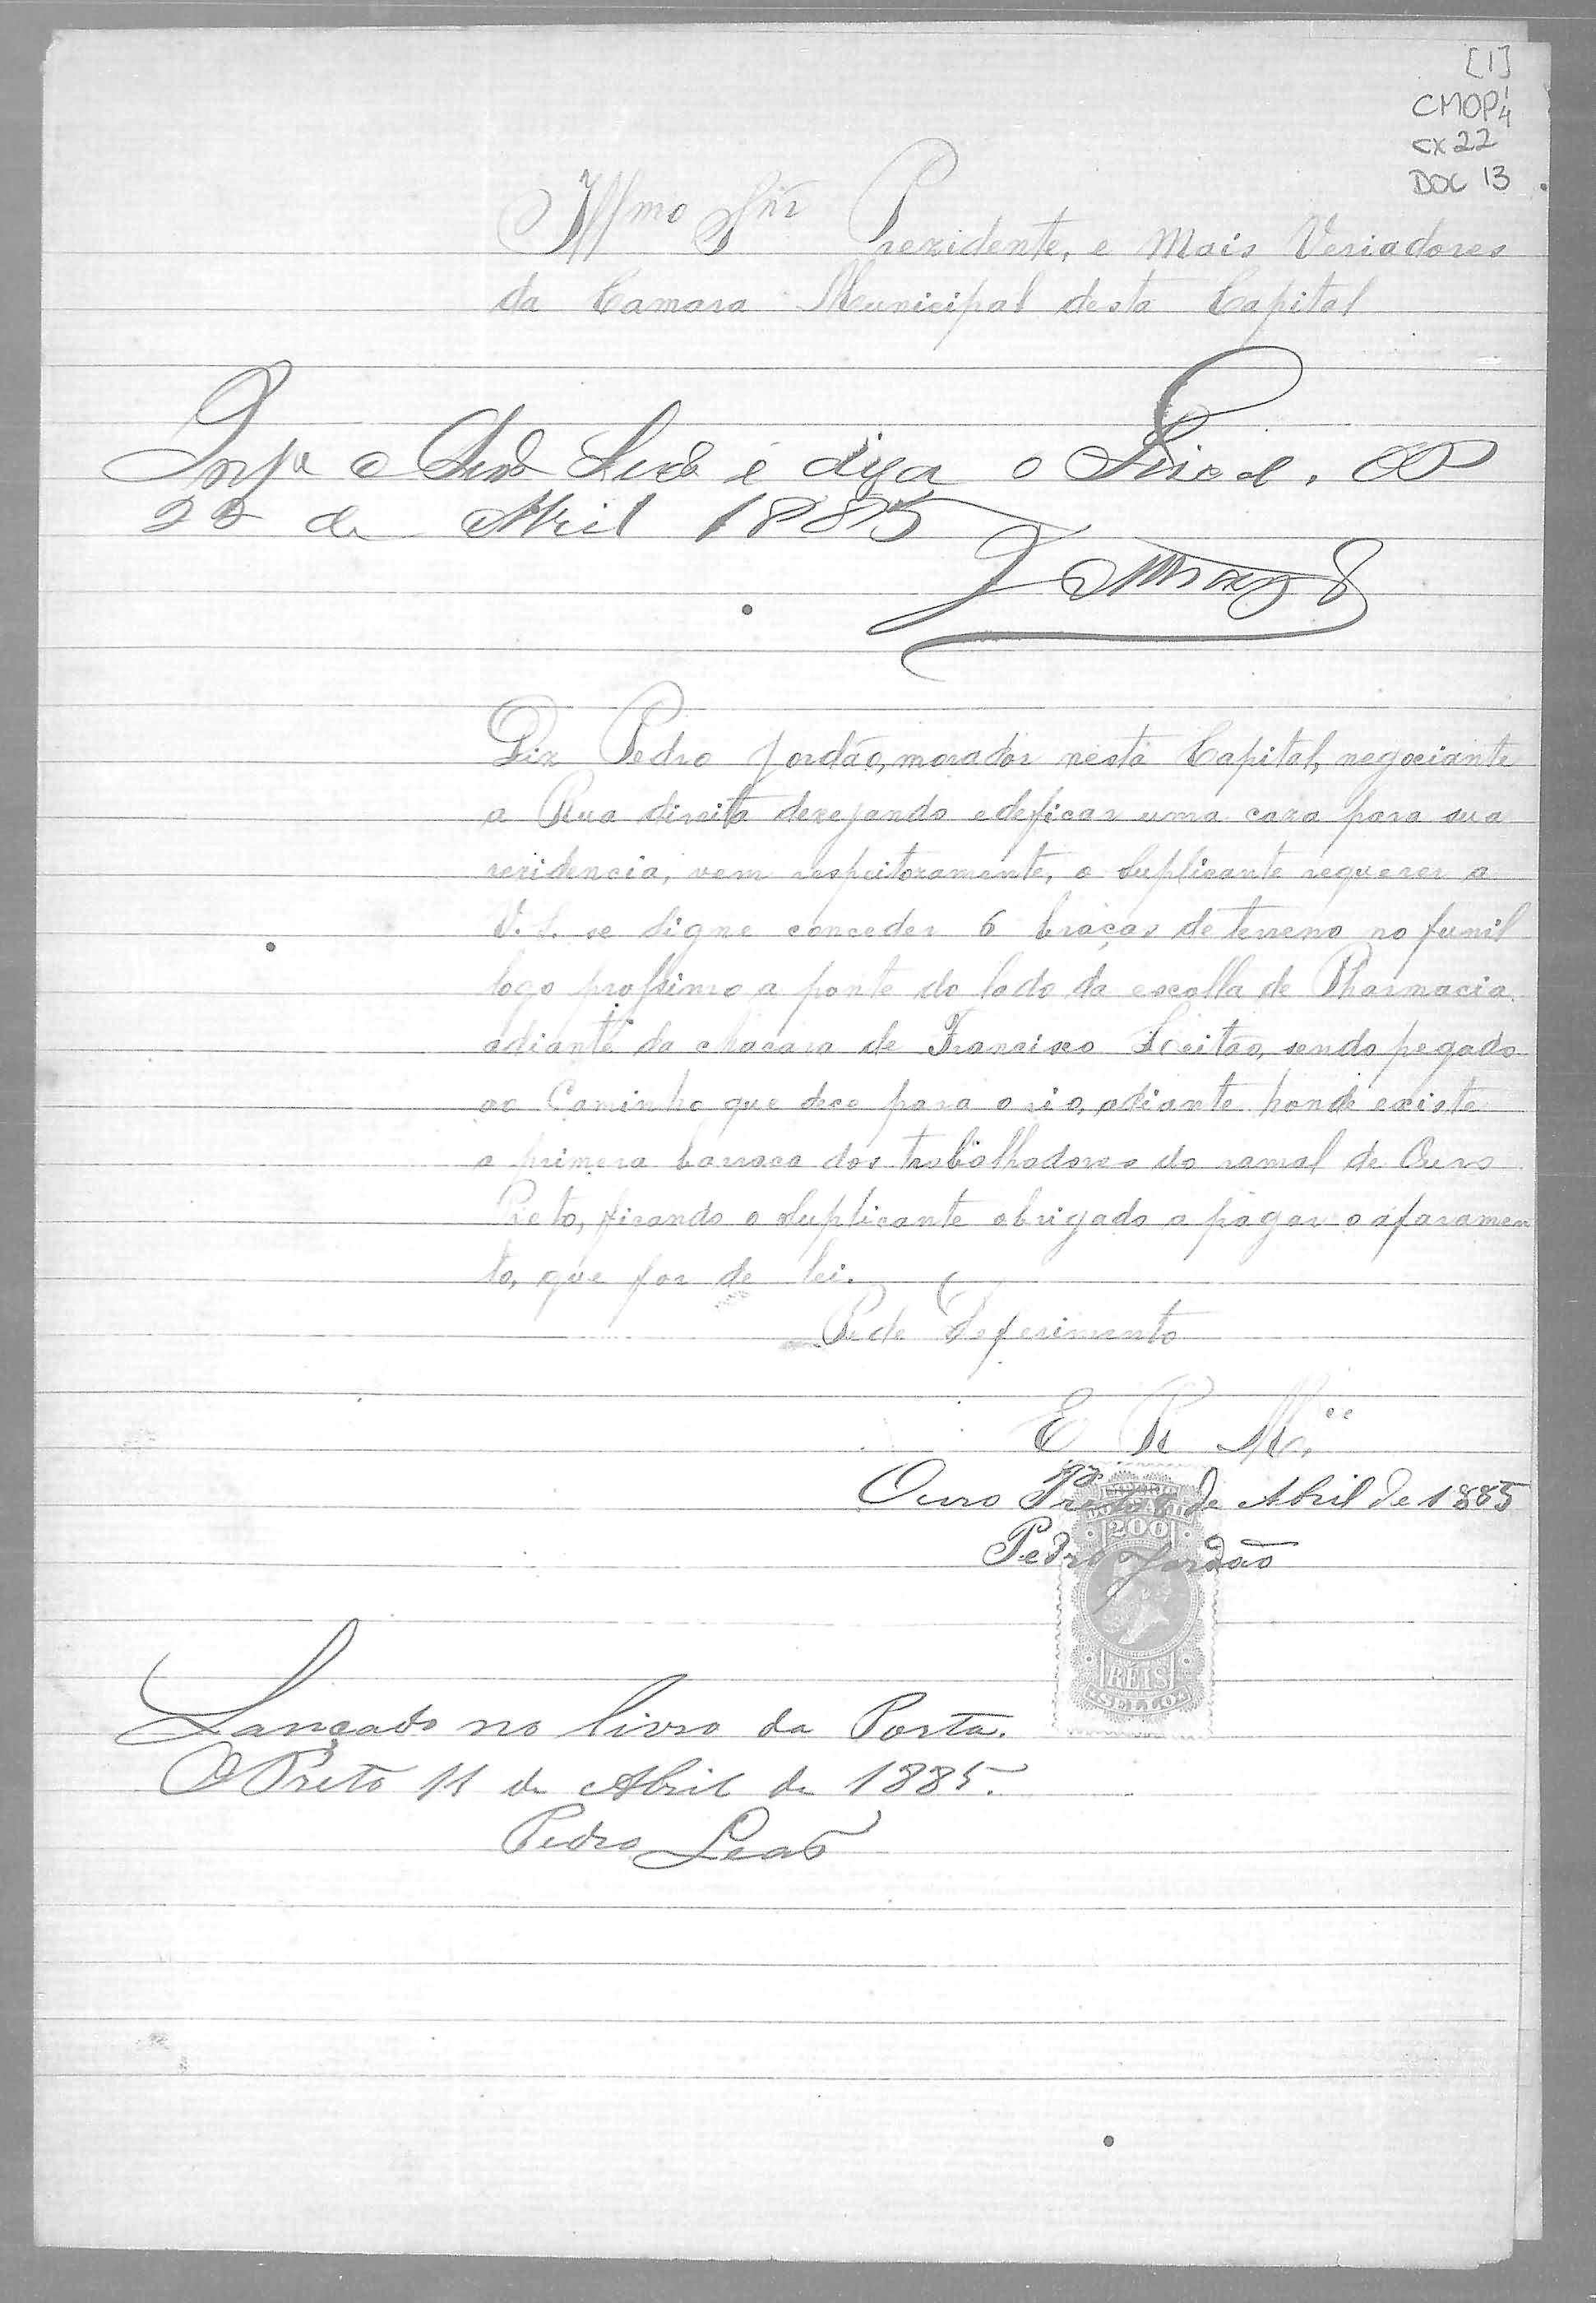 [1]
CMOP 1/4
CX 22
DOC 13
Illmo Snr Prezidente, e Mais Veriadores
da Camara Municipal desta Capital
e diga o Fiscal. OP
de Abril 1885
Diz Pedro Jordão, morador nesta Capital, negociante
a Rua direita dezejando edeficar uma caza para sua
rezidencia, vem respeitozamente, o Suplicante requerer a
V. S. se digne conceder 6 braças de terreno no funil
logo prossimo a ponte do lado da escolla de Pharmacia
adiante da chacara de Francisco Leitão, sendo pegado
ao Caminho que dece para o rio, adiante honde existe
a primera barraca dos trabalhadores do ramal de Ouro
Preto, ficando o Suplicante obrigado a pagar o aforamen
to, que for de lei.
Pede Deferimento
E R Mce
Ouro Preto de Abril de 1885
Pedro Jordão
200
RÉIS
SELLO
Lançado no livro da Porta.
O Preto 11 de Abril de 1885.
Pedro Leão